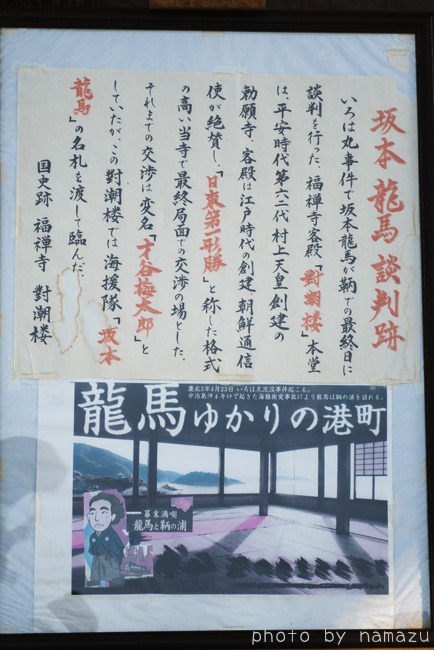 坂本龍馬談判跡
いろは丸事件で坂本龍馬が鞆での最終日に
談判を行った、福禅寺客殿「對潮楼」本堂
は、平安時代第六二代村上天皇創建の
勅願寺、客殿は江戸時代の創建 朝鮮通信
使が絶賛し、「日東第一形勝」と称した格式
の高い当寺で最終局面での交渉の場とした、
それまでの交渉は変名「才谷梅太郎」と
していたが、この對潮楼では海援隊「坂本
龍馬」の名札を渡して臨んだ。
国史跡 福禅寺 對潮楼
慶応3年4月23日 いろは丸沈没事件起こる。
宇治島沖4キロで起きた海難衝突事故により龍馬は鞆の浦を訪れる。
龍馬ゆかりの港町
幕末満喫
龍馬と鞆の浦
photo by namazu